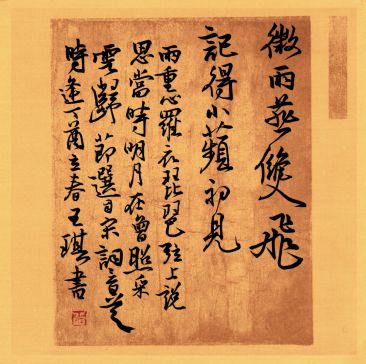 微雨燕雙飛
記得小蘋初見
兩重心羅衣琵琶弦上說
思當時明月在曾照采
雲歸 節選自宋詞
時逢丁酉立春王琪書